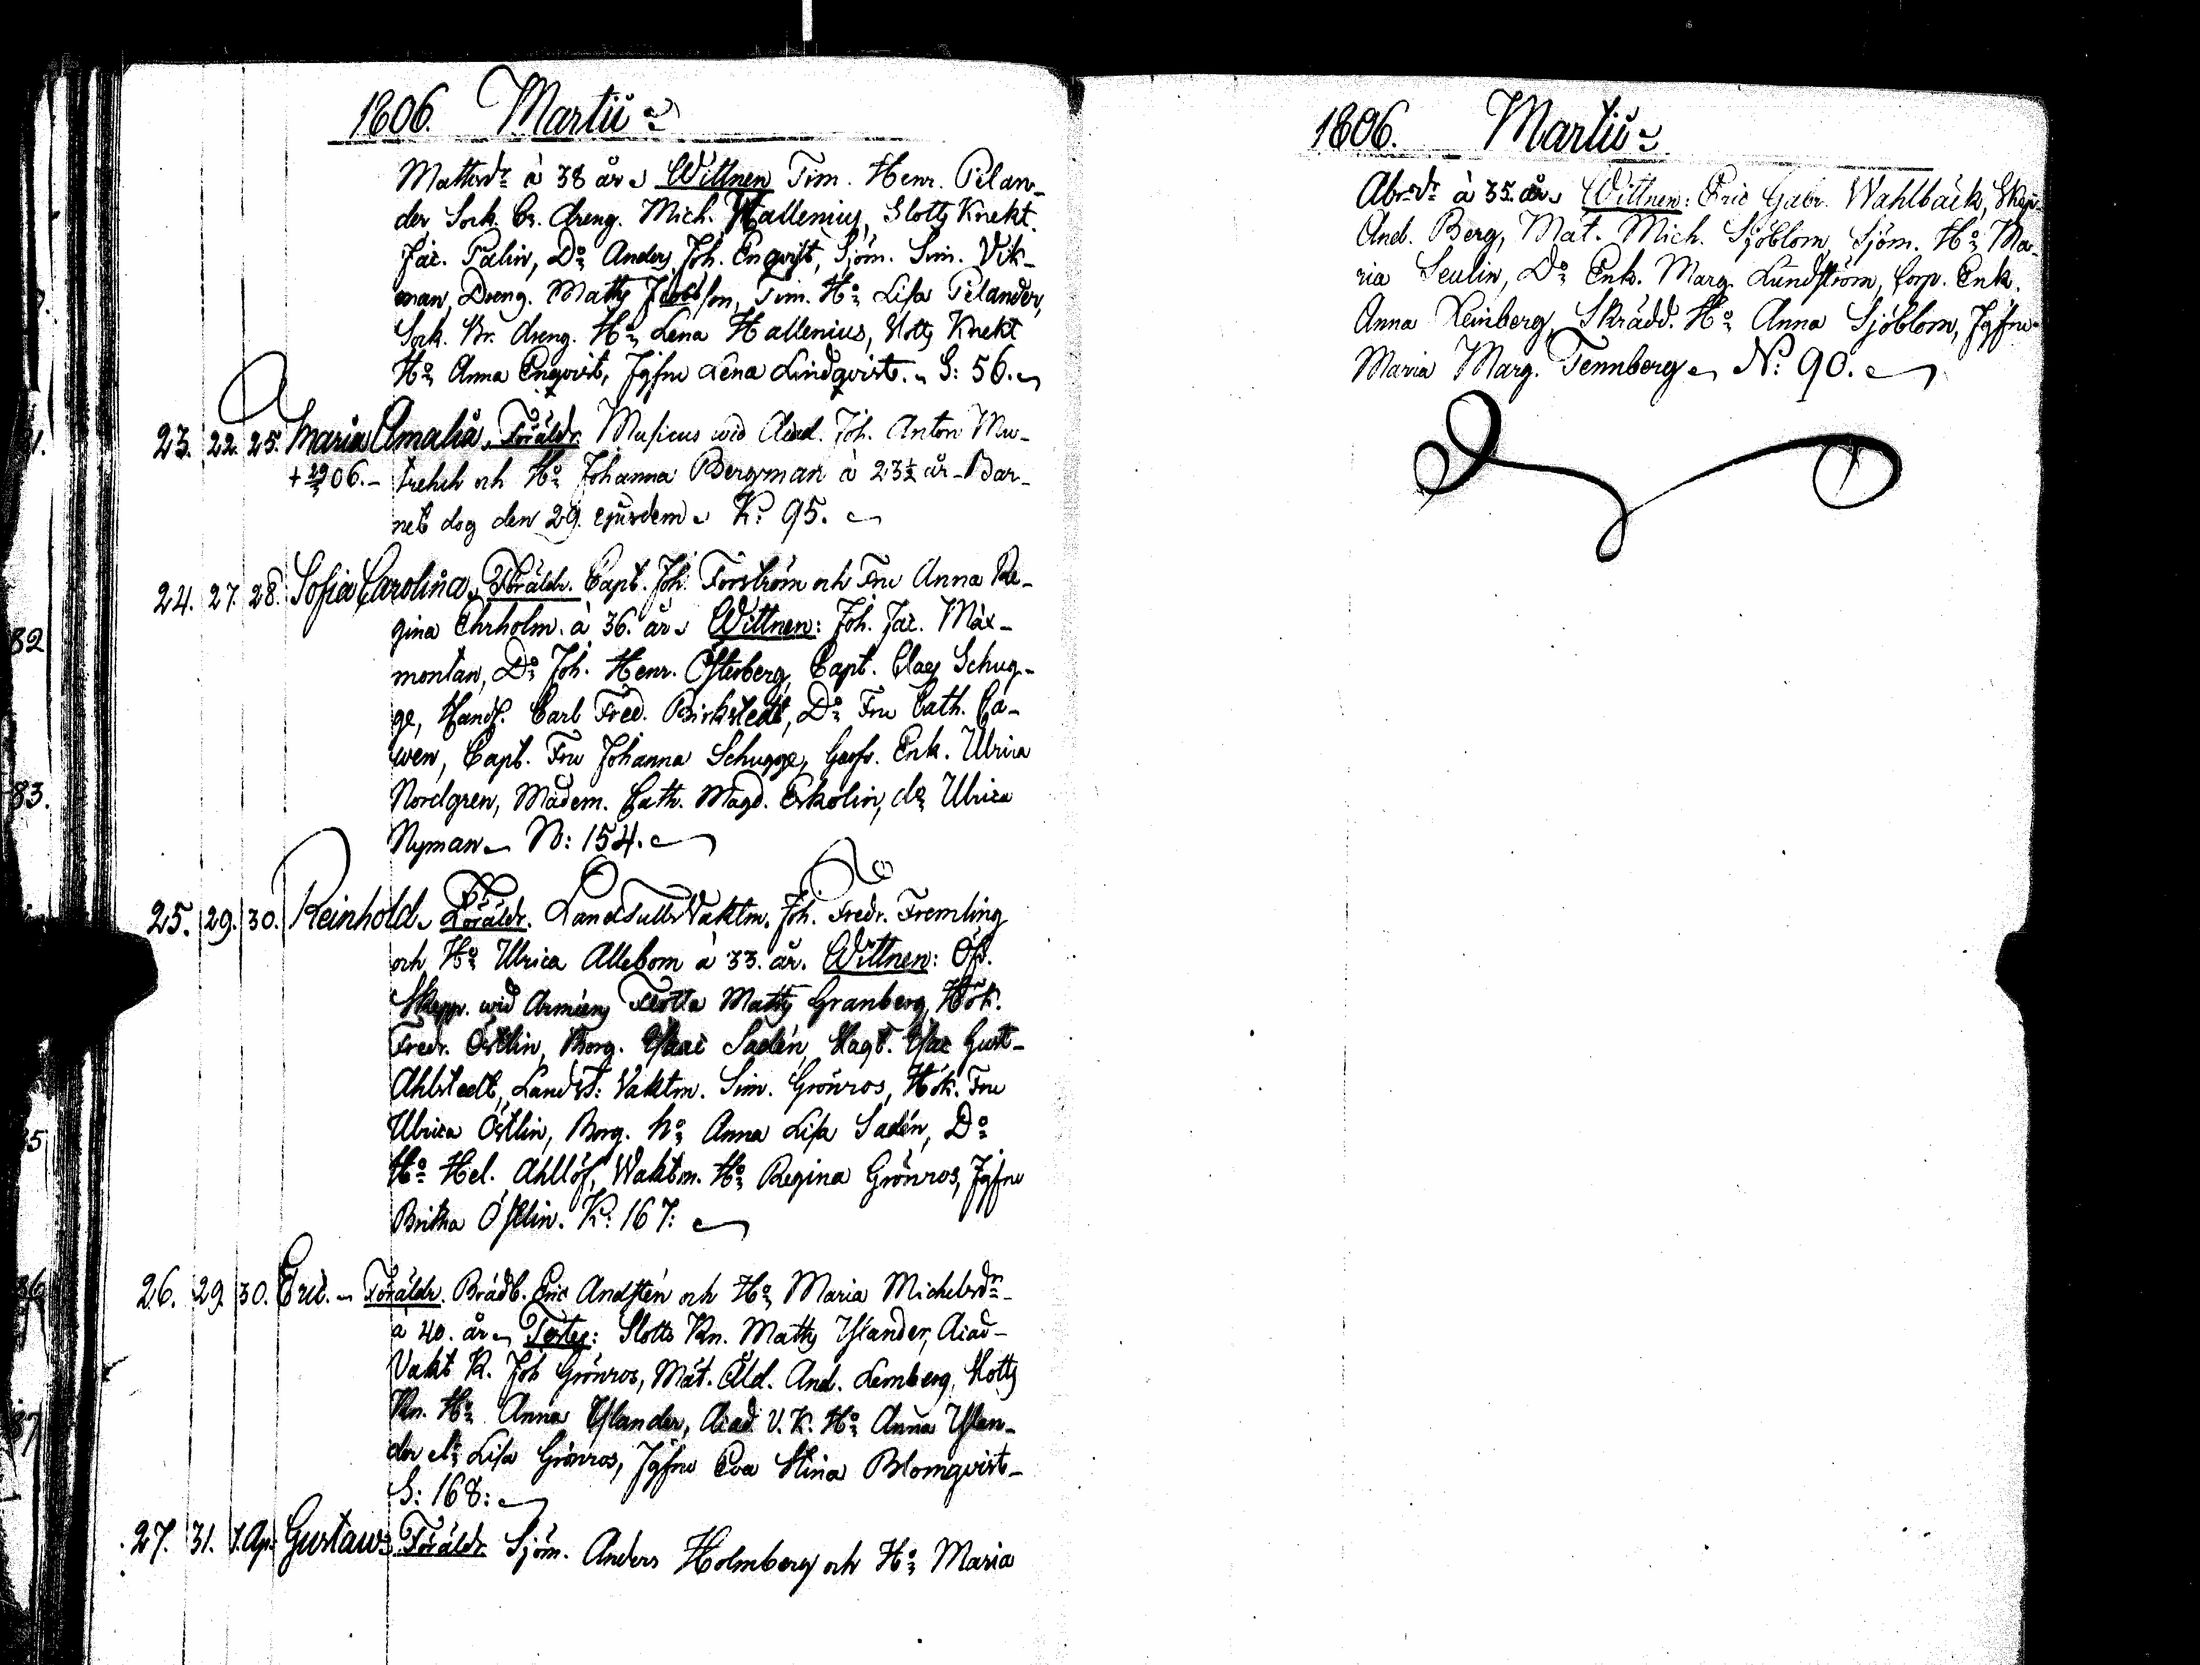 1806. Martii
Mattsdr à 38 år. Wittnen Tim. Henr. Pilan-
der Sock. Br. dreng. Mich. Hallenius, Slotts Knekt.
Jac. Palin, Do Anders Joh. Enqvist, Sjöm. Sim. Vik-
man, Dreng. Matts Jacobsson, Tim. Ho Lisa Pilander,
Sock. Br. dreng. Ho Lena Hallenius, Slotts Knekt
Ho Anna Enqvist, Jgfru Lena Lindqvist. S: 56.
23. 22. 25. Maria Amalia, Föräldr. Musicus wid Acad. Joh. Anton Mu-
+ 29/3 06. - trehch och Ho Johanna Bergman à 23½ år - Bar-
net dog den 29. ejusdem. K: 95.
24. 27. 28. Sofia Carolina, Föräldr. Capt. Joh. Forström och Fru Anna Re-
gina Ehrholm. à 36. år. Wittnen: Joh. Jac. Max-
montan, Do Joh. Henr. Österberg, Capt. Claes Schug-
ge, Handl. Carl Fred. Birkstedt, Do Fru Cath. Ca-
wen, Capt. Fru Johanna Schugge, Enk. Ulrica
Nordgren, Madem. Cath. Magd. Eskolin, do Ulrica
Nyman. N: 154.
25. 29. 30. Reinhold. Föräldr. LandtullsVaktm. Joh. Fredr. Fremling
och Ho Ulrica Allebom à 33. år. Wittnen: Öf.
Skepp. wid Arméens Flotta Matts Granberg, Hök.
Fredr. Östlin, Borg. Isaac Sadén, Isac Gust.
Ahlstedt, Landt: Vaktm. Sim. Grönros, Hök. Fru
Ulrica Östlin, Borg. ho Anna Lisa Sadén, Do
Ho Hel. Ahllöf, Waktm. Ho Regina Grönros, Jgfru
Britha Östlin. K: 167:
26. 29. 30. Eric. Föräldr. Brädb. Eric Andstén och Ho Maria Michelsdr
à 40. år. Testes: Slotts Kn. Matts Yslander, Acad-
Vakt K. Joh Grönros, Mat. Åld. And. Lemberg, Slotts
Kn. Ho Anna Yslander, Acad V. K. Ho Anna Yslan-
der Lisa Grönros, Jgfru Eva Stina Blomqvist-
S: 168:
27. 31. 1. Apr. Gustaw Föräldr. Sjöm. Anders Holmberg och Ho Maria
1806. Martii
Abrsdr à 35. år. Wittnen: Eric Gabr. Wahlbäck, Skep
And. Berg, Mat. Mich. Sjöblom, Sjöm. Ho Ma-
ria Seulin, Do Enk. Marg. Lundström, Corp. Enk.
Anna Reinberg, Skrädd. Ho Anna Sjöblom, Jgfru
Maria Marg. Tennberg. No: 90.